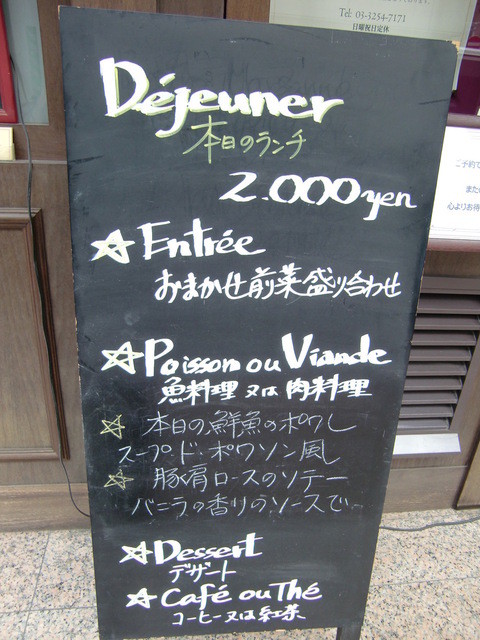 Tel: 03-3254-7171
日曜祝日定休
Déjeuner
本日のランチ
2.000yen
☆Entrée
おまかせ前菜盛り合わせ
☆Poisson ou Viande
魚料理 又は 肉料理
☆ 本日の鮮魚のポワレ
スープ・ド・ポワソン風
☆ 豚肩ロースのソテー
バニラの香りのソースで
☆Dessert
デザート
☆Café ou Thé
コーヒー又は紅茶
ご予約で
また
心よりお待